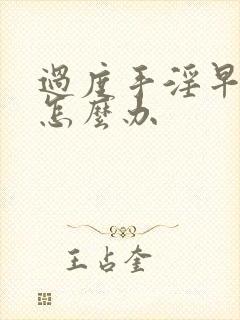 過度手淫早
怎麼办
王占奎